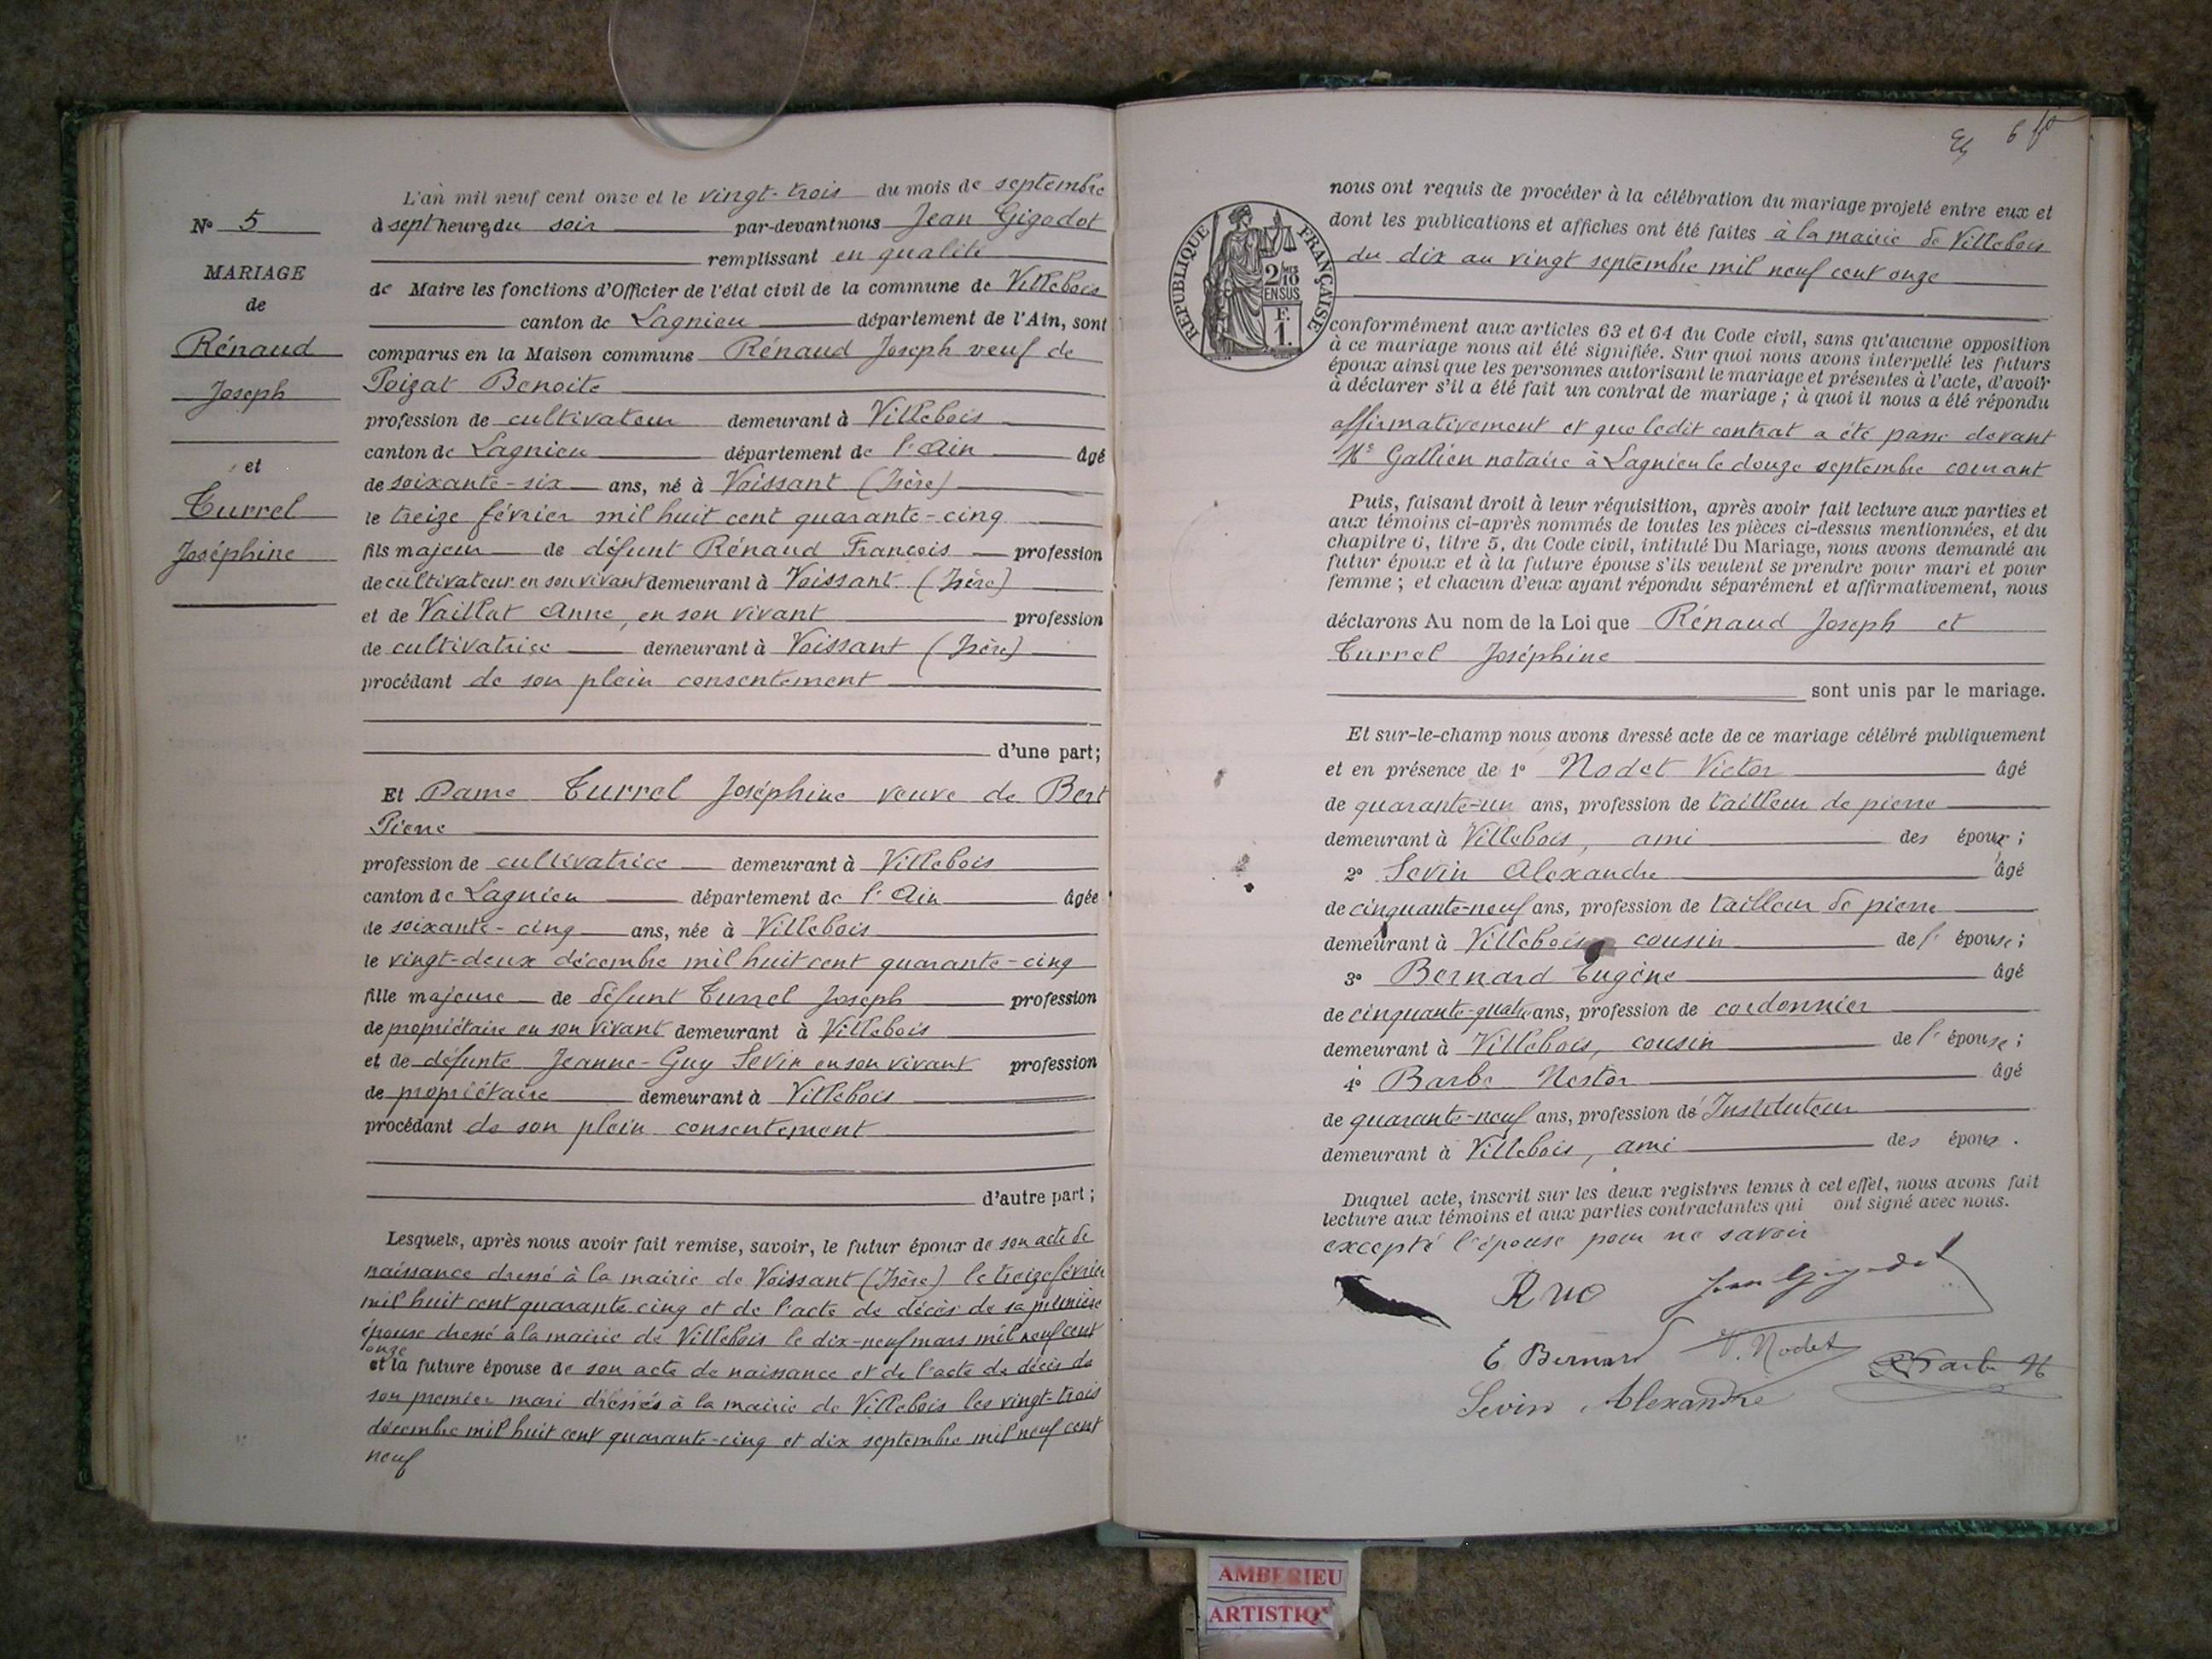 N° 5
MARIAGE
de
Rénaud
Joseph
et
Turrel
Joséphine
L'an mil neuf cent onze et le vingt-trois du mois de septembre
à sept heures du soir par-devant nous Jean Gigodot
remplissant en qualité
de Maire les fonctions d'Officier de l'état civil de la commune de Villebois
canton de Lagnieu département de l'Ain, sont
comparus en la Maison commune Rénaud Joseph veuf de
Poizat Benoite
profession de cultivateur demeurant à Villebois
canton de Lagnieu département de l'Ain âgé
de soixante-six ans, né à Voissant (Isère)
le treize février mil huit cent quarante-cinq
fils majeur de défunt Rénaud François profession
de cultivateur en son vivant demeurant à Voissant (Isère)
et de Vaillat Anne, en son vivant profession
de cultivatrice demeurant à Voissant (Isère)
procédant de son plein consentement
d'une part;
Et Dame Turrel Joséphine veuve de Bert
Pierre
profession de cultivatrice demeurant à Villebois
canton de Lagnieu département de l'Ain âgée
de soixante-cinq ans, née à Villebois
le vingt-deux décembre mil huit cent quarante-cinq
fille majeure de défunt Turrel Joseph profession
de propriétaire en son vivant demeurant à Villebois
et de défunte Jeanne-Guy Sevin en son vivant profession
de propriétaire demeurant à Villebois
procédant de son plein consentement
d'autre part;
Lesquels, après nous avoir fait remise, savoir, le futur époux de son acte de
naissance dressé à la mairie de Voissant (Isère) le treize février
mil huit cent quarante cinq et de l'acte de décès de sa première
épouse dressé à la mairie de Villebois le dix-neuf mars mil neuf cent
onze
et la future épouse de son acte de naissance et de l'acte de décès de
son premier mari dressés à la mairie de Villebois les vingt-trois
décembre mil huit cent quarante-cinq et dix septembre mil neuf cent
neuf
6 fo
RÉPUBLIQUE FRANÇAISE
2 MES
10
EN SUS
F.
1.
nous ont requis de procéder à la célébration du mariage projeté entre eux et
dont les publications et affiches ont été faites à la mairie de Villebois
du dix au vingt septembre mil neuf cent onze
conformément aux articles 63 et 64 du Code civil, sans qu'aucune opposition
à ce mariage nous ait été signifiée. Sur quoi nous avons interpellé les futurs
époux ainsi que les personnes autorisant le mariage et présentes à l'acte, d'avoir
à déclarer s'il a été fait un contrat de mariage; à quoi il nous a été répondu
affirmativement et que ledit contrat a été passé devant
Me Gallien notaire à Lagnieu le douze septembre courant
Puis, faisant droit à leur réquisition, après avoir fait lecture aux parties et
aux témoins ci-après nommés de toutes les pièces ci-dessus mentionnées, et du
chapitre 6, titre 5, du Code civil, intitulé Du Mariage, nous avons demandé au
futur époux et à la future épouse s'ils veulent se prendre pour mari et pour
femme; et chacun d'eux ayant répondu séparément et affirmativement, nous
déclarons Au nom de la Loi que Rénaud Joseph et
Turrel Joséphine
sont unis par le mariage.
Et sur-le-champ nous avons dressé acte de ce mariage célébré publiquement
et en présence de 1° Nodet Victor âgé
de quarante-un ans, profession de tailleur de pierre
demeurant à Villebois, ami des époux;
2° Sevin Alexandre âgé
de cinquante-neuf ans, profession de tailleur de pierre
demeurant à Villebois cousin de l'épouse;
3° Bernard Eugène âgé
de cinquante-quatre ans, profession de cordonnier
demeurant à Villebois, cousin de l'épouse;
4° Barbe Nestor âgé
de quarante-neuf ans, profession de Instituteur
demeurant à Villebois, ami des époux.
Duquel acte, inscrit sur les deux registres tenus à cet effet, nous avons fait
lecture aux témoins et aux parties contractantes qui ont signé avec nous.
excepté l'épouse pour ne savoir
Jean Gigodot
E Bernard V. Nodet Barbe N
Sevin Alexandre
AMBERIEU
ARTISTIQ